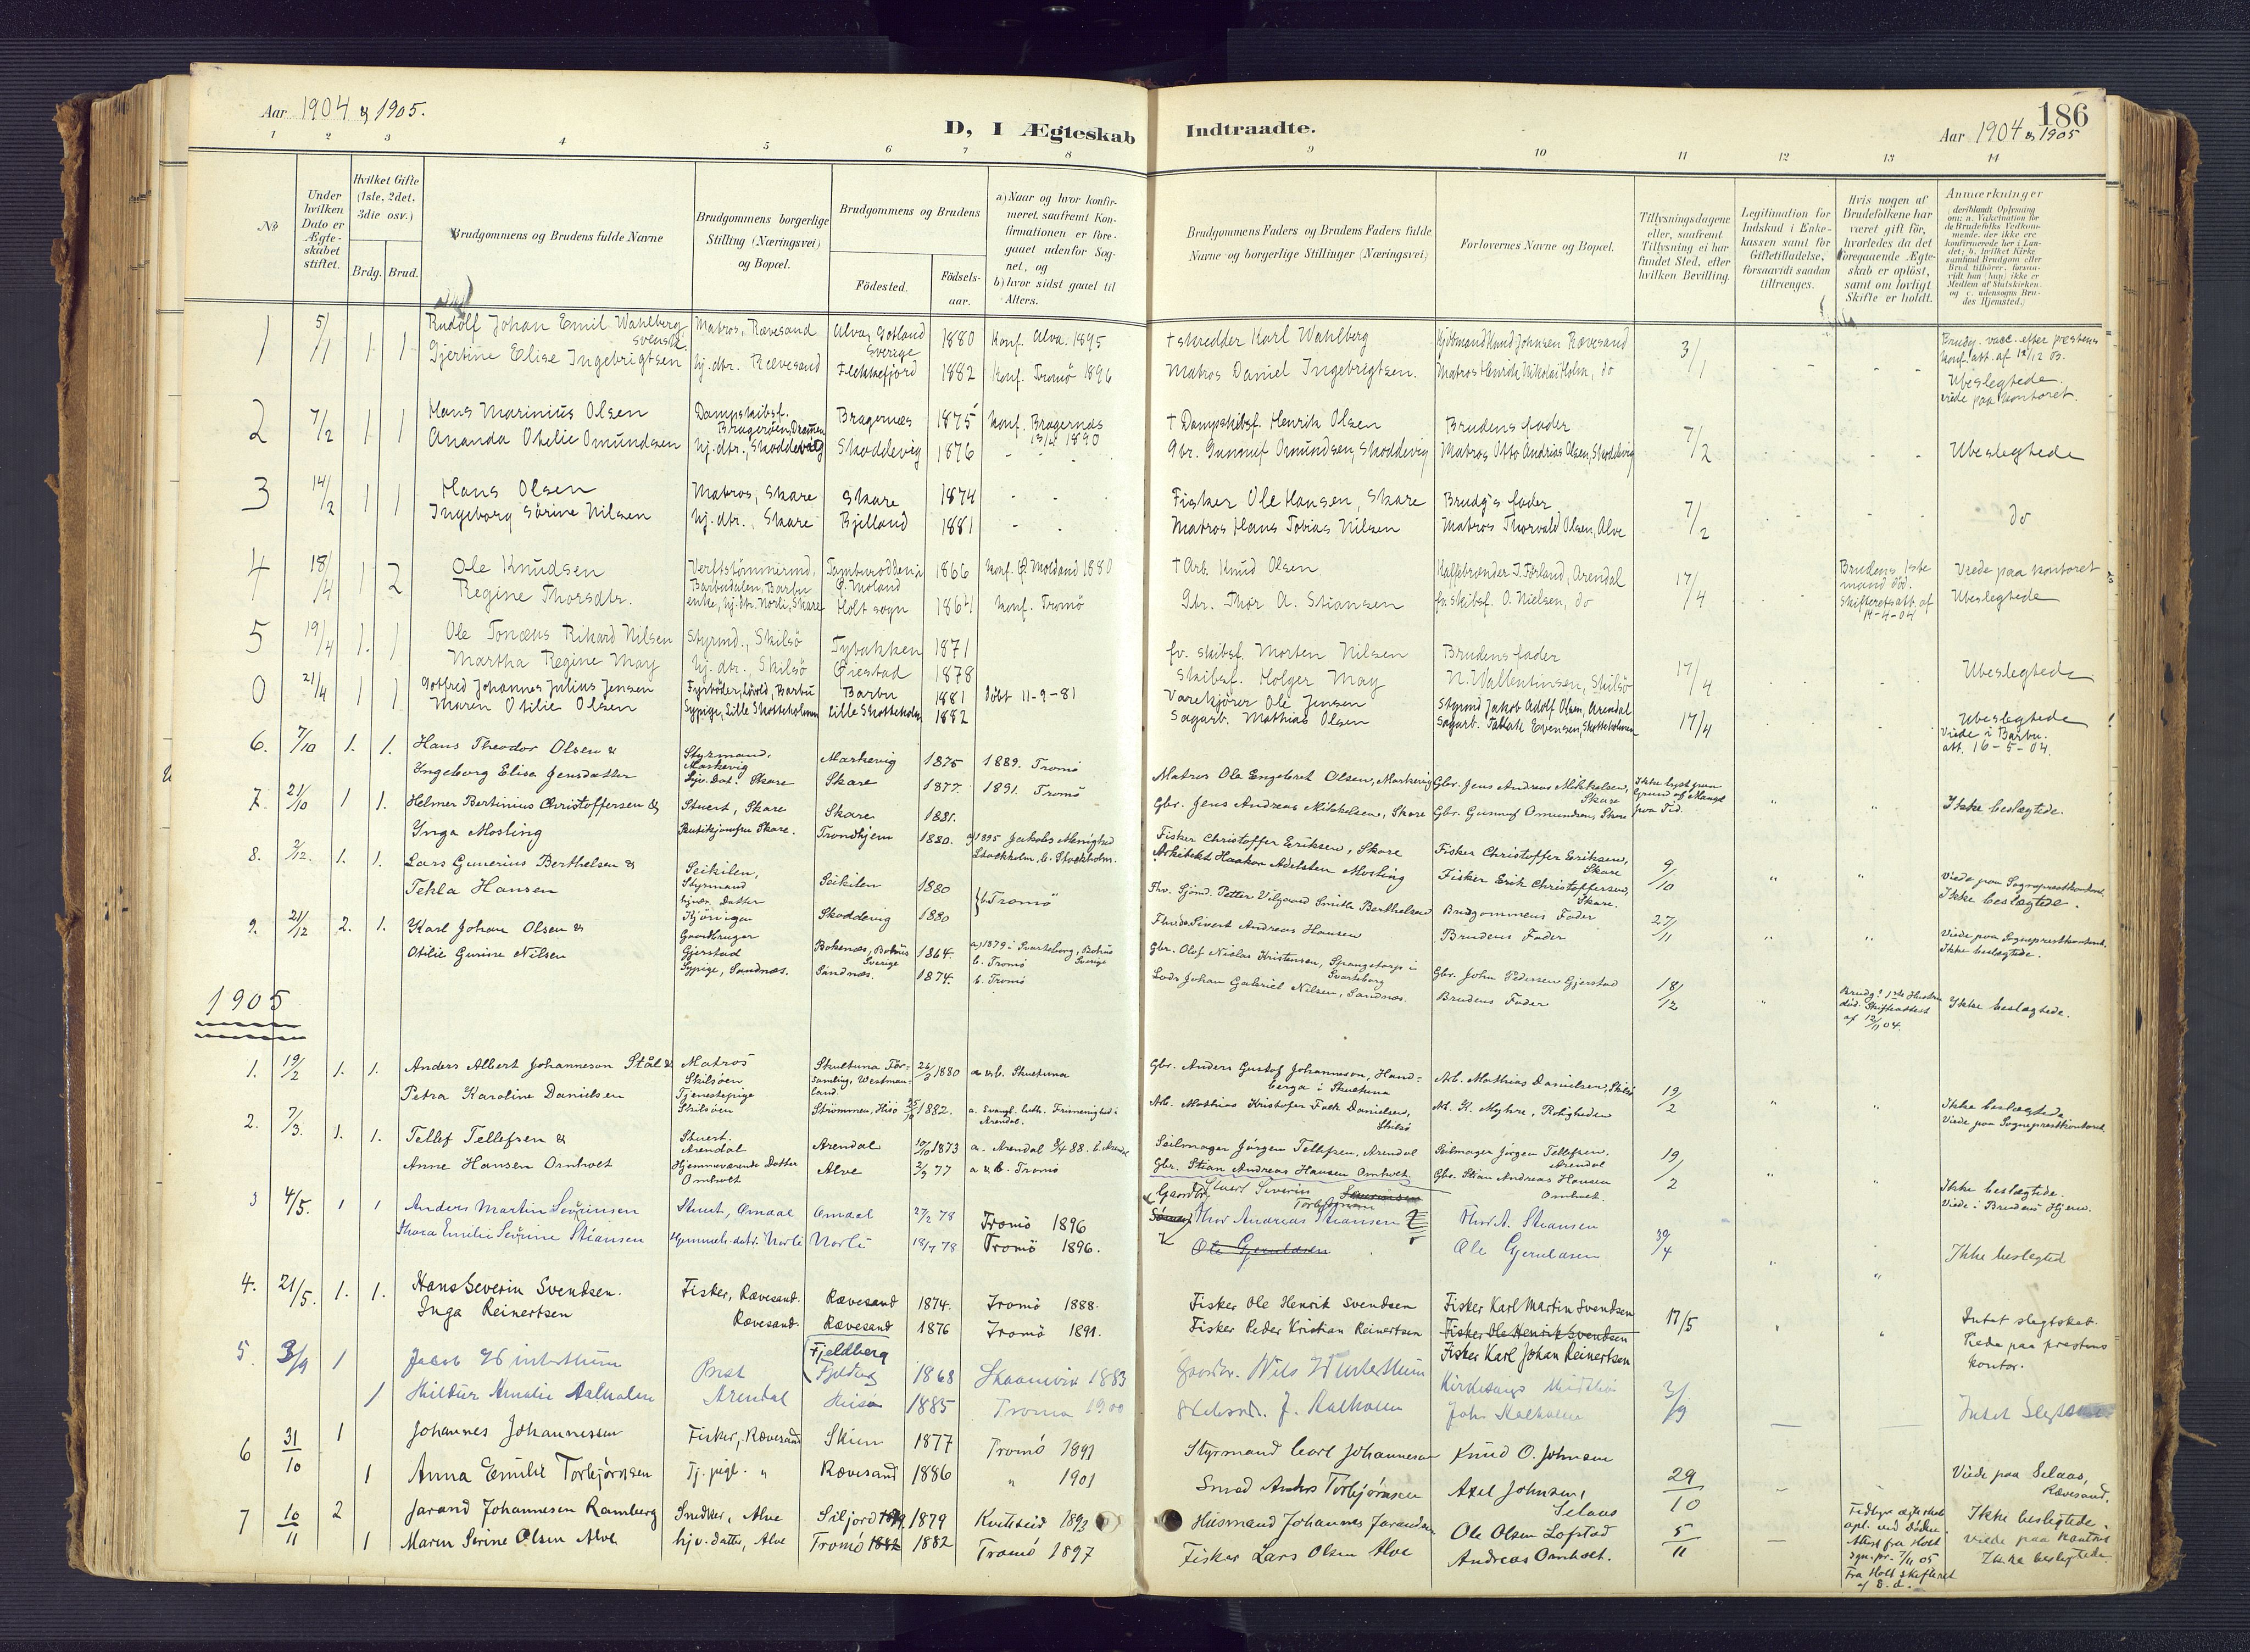 Aar 1904 & 1905.
D, I Ægteskab Indtraadte.
186
Aar 1904 & 1905
1 2 3 4 5 6 7 8 9 10 11 12 13 14
No
Under hvilken Dato er Ægteskabet stiftet.
Hvilket Gifte (1ste, 2det, 3die osv.)
Brdg. Brud.
Brudgommens og Brudens fulde Navne
Brudgommens borgerlige Stilling (Næringsvei) og Bopæl.
Brudgommens og Brudens
Fødested.
Fødselsaar.
a) Naar og hvor konfirmeret, saafremt Konfirmationen er foregaaet udenfor Sognet, og
b) hvor sidst gaaet til Alters.
Brudgommens Faders og Brudens Faders fulde Navne og borgerlige Stillinger (Næringsvei)
Forlovernes Navne og Bopæl.
Tillysningsdagene eller, saafremt Tillysning ei har fundet Sted, efter hvilken Bevilling.
Legitimation for Indskud i Enkekassen samt for Giftetilladelse, forsaavidt saadan tiltrænges.
Hvis nogen af Brudefolkene har været gift før, hvorledes da det foregaaende Ægteskab er opløst, samt om lovligt Skifte er holdt.
Anmærkninger (deriblandt Oplysning om: a. Vakcination for de Brudefolks Vedkommende, der ikke ere konfirmerede her i Landet; b. hvilket Kirkesamfund Brudgom eller Brud tilhører, forsaavidt han (hun) ikke er Medlem af Statskirken og c. udensogns Brudes Hjemsted.)
1 5/1 1 1 Rudolf Johan Emil Wahlberg, svensk. Matros, Rævesand Alva, Gotland Sverige 1880 Konf. Alva. 1895 † skredder Karl Wahlberg Knud Johnsen Rævesand 3/1 Brudg. vacc. efter prestens konf. att. af 12/12 03.
Gjertine Elise Ingebrigtsen hj. dtr. Rævesand Flekkefjord 1882 Konf. Tromø 1896 Matros Daniel Ingebrigtsen. Matros Henrik Nikolai Holm, do Ubeslegtede. viede paa kontoret.
2 7/2 1 1 Hans Marinius Olsen Dampskibsf. Bragerøen, Drammen Bragernæs 1875 Konf. Bragernæs 1890 † Dampskibsf. Henrik Olsen Brudens fader 7/2
Ananda Otelie Omundsen hj. dtr., Skoddevig Skoddevig 1876 Gbr. Gunnuf Omundsen, Skoddevig Matros Otto Andrias Olsen, Skoddevig Ubeslegtede
3 14/2 1 1 Hans Olsen Matros, Skare Skare 1874 Fisker Ole Hansen, Skare Brudg's fader 7/2
Ingeborg Sørine Nilsen hj. dtr., Skare Bjelland 1881 Matros Hans Tobias Nilsen Matros Thorvald Olsen, Alve do
4 18/4 1 2 Ole Knudsen Verftstømmermd, Barbudalen, Barbu Ø. Moland 1866 Konf. Ø. Moland 1880 † Arb. Knud Olsen Kaffebrænder J. Førland, Arendal 17/4 Brudens 1ste mand død. Skifteretsatt. af 14-4-04 Viede paa kontoret
Regine Thorsdtr. enke, hj. dtr. Norli, Skare Holt sogn 1864 Konf. Tromø Gbr. Thor A. Stiansen fv. skibsf. O. Nielsen, do Ubeslegtede
5 19/4 1. 1 Ole Tonæus Rikard Nilsen Styrmd., Skilsø Tybakken 1871 fv. skibsf. Morten Nilsen Brudens fader 17/4
Martha Regine May hj. dtr., Skilsø Øiestad 1878 Skibsf. Holger May N. Vallentinsen, Skilsø Ubeslegtede
0 21/4 1 1 Gotfred Johannes Julius Jensen Fyrbøder, Løvold, Barbu Barbu 1881 døbt 11-9-81 Varekjører Ole Jensen Styrmd Jakob Adolf Olsen, Arendal 17/4 Ubeslegtede
Maren Otilie Olsen Sypige, Lille Skotteholmen Lille Skotteholm 1882 Sagarb. Mathias Olsen Sagarb. Tallak Evensen, Skotteholmen Viede i Barbu. att. 16-5-04.
6. 7/10 1. 1. Hans Theodor Olsen & Styrmand. Markevig Markevig 1875 1889. Tromø Matros Ole Engebret Olsen, Markevig Gbr. Jens Andreas Mikkelsen, Skare Ikke lyst paa Grund af Mangel paa Tid.
Ingeborg Elise Jensdatter Hjv. Dat. Skare Skare 1877. 1891. Tromø Gbr. Jens Andreas Mikkelsen, Skare Gbr. Gunnuf Omundsen, Skare Ikke beslægtede.
7. 21/10 1 1. Helmer Bertinius Christoffersen & Stuert, Skare Skare 1881. Fisker Christoffer Eriksen, Skare Fisker Christoffer Eriksen, Skare 9/10 Viede paa Sogneprestkontoret.
Inga Mosling Butikjomfru Skare. Trondhjem 1880. a) 1895 Jakobs Menighed Stockholm, b. Stockholm. Arkitekt Haakon Adelsten Mosling Fisker Erik Christoffersen, Skare. Ikke beslægtede.
8. 2/12. 1. 1. Lars Gunerius Berthelsen & Seikilen, Styrmand Seikilen 1880 b. Tromø Fhv. Sjømd. Petter Vilgaard Smith Berthelsen Brudgommens Fader 27/11 Viede paa Sogneprestkontoret.
Tekla Hansen hjvær. Datter Kjørvigen Skoddevig 1880 Sivert Andreas Hansen Brudens Fader Ikke beslægtede.
9. 21/12 2. 1. Karl Johan Olsen & Gaardbruger Gjerstad Bokenæs, Bohüs Sverige 1864. a) 1879 i Svarteborg, Bohüs b. Tromø Sverige Gbr. Olof Niclas Kristensen, Spangetorp i Svarteborg Gbr. John Pedersen Gjerstad 18/12 Brudg.s 1ste Hustru død. Skifteattest af 12/11 04. Ikke beslægtede.
Otilie Gurine Nilsen Sypige, Sandnæs. Sandnæs. 1874. b. Tromø Lods Johan Gabriel Nilsen, Sandnæs. Brudens Fader
1905
1. 19/2 1. 1. Anders Albert Johanneson Stål & Matros Skilsøen Skultuna Församling, Westmanland. 26/3 1880 a & b. Skultuna Gbr. Anders Gustaf Johannesson, Handberga i Skultuna Arb. Mathias Danielsen, Skilsø 19/2
Petra Karoline Danielsen Tjenestepige Skilsøen Strømmen, Hisø 1882. a. Evangl. luth. Frimenighed i Arendal. Arb. Mathias Kristofer Falk Danielsen, Skilsø K. Myhre, Roligheden Ikke beslægtede. Viede paa Sogneprestkontoret
2. 7/3. 1. 1. Tellef Tellefsen & Stuert. Arendal Arendal 10/10 1873 a. Arendal 88. b. Arendal Seilmager Jørgen Tellefsen, Arendal Seilmager Jørgen Tellefsen, Arendal 19/2
Anne Hansen Omholt Hjemmeværende Datter Omholt Alve 2/9 77 a & b. Tromø Gbr. Stian Andreas Hansen Omholt Gbr. Stian Andreas Hansen Omholt. Ikke beslægtede. Viede i Brudens Hjem.
3 4/5. 1 1 Anders Martin Sevrinsen Stuert, Omdal Omdal 27/2 78 Tromø 1896 Stuert Severin Torbjørnsen Thor A. Stiansen 30/4
Thora Emilie Sevrine Stiansen Hjemmeh. datr. Norli Norli 18/7 78 Tromø 1896. Gaardbr. Thor Andreas Stiansen Ole Gjeruldsen Ikke beslegted
Ole Gjeruldsen
4. 21/5. 1. 1. Hans Severin Svendsen. Fisker, Rævesand. Rævesand 1874. Tromø 1888. Fisker Ole Henrik Svendsen Fisker Karl Martin Svendsen 17/5 Intet slegtskab.
Inga Reinertsen Rævesand. Rævesand 1876 Tromø 1891. Fisker Peder Kristian Reinertsen Fisker Ole Henrik Svendsen Fisker Karl Johan Reinertsen Viede paa prestens kontor.
5. 3/9 1 Jacob Winterthun Prest Fjeldberg 1868 Skaanevik 1883 Gaardbr. Nils Winterthun 3/9
1 Hildur Amalie Aalholm Arendal Hisø 1885 Tromø 1900 Skibsrd. J. Aalholm John Aalholm Intet Slegtskab
6 31/10 1 Johannes Johannessen Fisker, Rævesand Skien 1877 Tromø 1891 Styrmand Carl Johannesen Knud O. Johnsen 29/10 Viede paa Selaas, Rævesand.
1 Anna Emilie Torbjørnsen Tj. pige. " Rævesand 1886 " 1901 Smed Anders Torbjørnsen Axel Johnsen, Selaas
7 10/11 2 Jarand Johannesen Ramberg Snedker, Alve Siljord 1879 Kviteseid 1893 Husmand Johannes Jarandsen Ole Olsen Lofstad 5/11 Tidligere ægteskab opl. ved Døden. Attest fra Holt sgn. pr. 7/11 05 Ikke beslegtede.
1 Maren Serine Olsen Alve hjv. datter, Alve Tromø 1882 Tromø 1897 Fisker Lars Olsen Alve Andreas Omholt. Fra Holt skifteret af D. d. viede paa kontoret Ikke beslegtede.